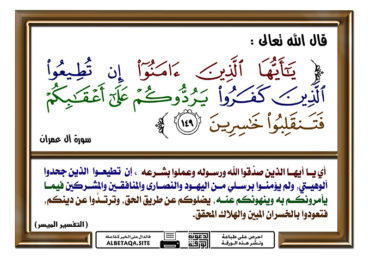 قال الله تعالى :
يَٰٓأَيُّهَا ٱلَّذِينَ ءَامَنُوٓا۟ إِن تُطِيعُوا۟
ٱلَّذِينَ كَفَرُوا۟ يَرُدُّوكُمْ عَلَىٰٓ أَعْقَٰبِكُمْ
فَتَنقَلِبُوا۟ خَٰسِرِينَ ١٤٩
سورة آل عمران
أي يـا أيهـا الذين صدَّقوا الله ورسوله وعملوا بشـرعه ، إن تطيعـوا الذين جحدوا
ألوهيتي، ولم يؤمنـوا برسلـي مـن اليهـود والنصـارى والمنافقـين والمشـركين فيمـا
يأمرونكــم به وينهونكم عنــه، يضلوكـم عن طريق الحق، وترتـدُّوا عن دينكـم،
فتعودوا بالخسران المبين والهلاك المحقق.
(التفسير الميسر)
ALBETAQA.SITE
احرص على طباعة
ونشر هذه الورقة